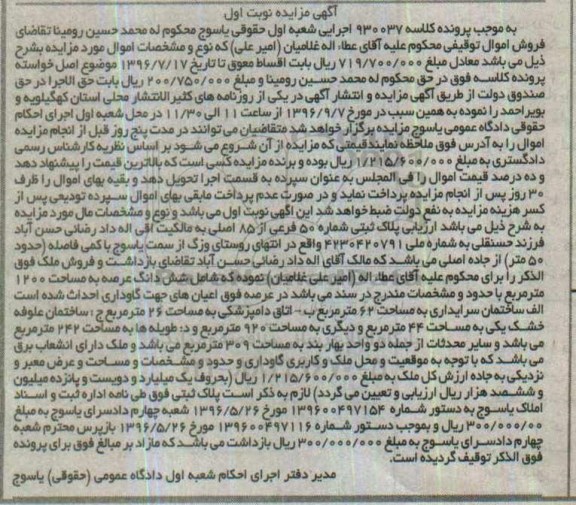 آگهی مزایده نوبت اول
به موجب پرونده کلاسه ۹۳۰۰۳۷ اجرایی شعبه اول حقوقی یاسوج محکوم له محمد حسین رومینا تقاضای
فروش اموال توقیفی محکوم علیه آقای عطاء اله غلامیان (امیر علی) که نوع و مشخصات اموال مورد مزایده بشرح
ذیل می باشد معادل مبلغ ۷۱۹/۷۰۰/۰۰۰ ریال بابت اقساط معوق تا تاریخ ۱۳۹۶/۷/۱۷ موضوع اصل خواسته
پرونده کلاسه فوق در حق محکوم له محمد حسین رومینا و مبلغ ۲۰۰/۷۵۰/۰۰۰ ریال بابت حق الاجرا در حق
صندوق دولت از طریق آگهی مزایده و انتشار آگهی در یکی از روزنامه های کثیر الانتشار محلی استان کهگیلویه و
بویراحمد را نموده به همین سبب در مورخ ۱۳۹۶/۹/۷ از ساعت ۱۱ الی ۱۱/۳۰ در محل شعبه اول اجرای احکام
حقوقی دادگاه عمومی یاسوج مزایده برگزار خواهد شد متقاضیان می توانند در مدت پنج روز قبل از انجام مزایده
اموال را به آدرس فوق ملاحظه نمایند قیمتی که مزایده از آن شروع می شود بر اساس نظریه کارشناس رسمی
دادگستری به مبلغ ۱/۲۱۵/۶۰۰/۰۰۰ ریال بوده و برنده مزایده کسی است که بالاترین قیمت را پیشنهاد دهد
و ده درصد قیمت اموال را فی المجلس به عنوان سپرده به قسمت اجرا تحویل دهد و بقیه بهای اموال را ظرف
۳۰ روز پس از انجام مزایده پرداخت نماید و در صورت عدم پرداخت مابقی بهای اموال سپرده تودیعی پس از
کسر هزینه مزایده به نفع دولت ضبط خواهد شد این آگهی نوبت اول می باشد و نوع و مشخصات مال مورد مزایده
به شرح ذیل می باشد ارزیابی پلاک ثبتی شماره ۵۰ فرعی از ۸۵ اصلی به مالکیت اقی اله داد رضائی حسن آباد
فرزند حسنقلی به شماره ملی ۴۲۳۰۴۲۰۷۹۱ واقع در انتهای روستای وزگ از سمت یاسوج با کمی فاصله (حدود
۵۰ متر) از جاده اصلی می باشد که مالک آقای اله داد رضائی حسن آباد تقاضای بازداشت و فروش ملک فوق
الذکر را برای محکوم علیه آقای عطاء اله (امیر علی غلامیان) نموده که شامل شش دانگ عرصه به مساحت ۱۲۰۰
مترمربع با حدود و مشخصات مندرج در سند می باشد در عرصه فوق اعیان های جهت گاوداری احداث شده است
الف ساختمان سرایداری به مساحت ۶۲ مترمربع ب- اتاق دامپزشکی به مساحت ۲۶ مترمربع ج : ساختمان علوفه
خشک یکی به مساحت ۴۴ مترمربع و دیگری به مساحت ۹۲۰ مترمربع و د: طویله ها به مساحت ۲۴۲ مترمربع
می باشد و سایر محدثات از جمله دو واحد بهار بند به مساحت ۳۰۹ مترمربع می باشد و ملک دارای انشعاب برق
می باشد که با توجه به موقعیت و محل ملک و کاربری گاوداری و حدود و مشخصات و مساحت و عرض معبر و
نزدیکی به جاده ارزش کل ملک به مبلغ ۱/۲۱۵/۶۰۰/۰۰۰ ریال (بحروف یک میلیارد و دویست و پانزده میلیون
و ششصد هزار ریال ارزیابی و تعیین می گردد) لازم به ذکر است پلاک ثبتی فوق طی نامه اداره ثبت و اسناد
املاک یاسوج به دستور شماره ۱۳۹۶۰۰۴۹۷۱۵۴ مورخ ۱۳۹۶/۵/۲۶ شعبه چهارم دادسرای یاسوج به مبلغ
۳۰۰/۰۰۰/۰۰ ریال و بموجب دستور شماره ۱۳۹۶۰۰۴۹۷۱۱۶ مورخ ۱۳۹۶/۵/۲۶ بازپرس محترم شعبه
چهارم دادسرای یاسوج به مبلغ ۳۰۰/۰۰۰/۰۰۰ ریال بازداشت می باشد که مازاد بر مبالغ فوق برای پرونده
فوق الذکر توقیف گردیده است.
مدیر دفتر اجرای احکام شعبه اول دادگاه عمومی (حقوقی) یاسوج